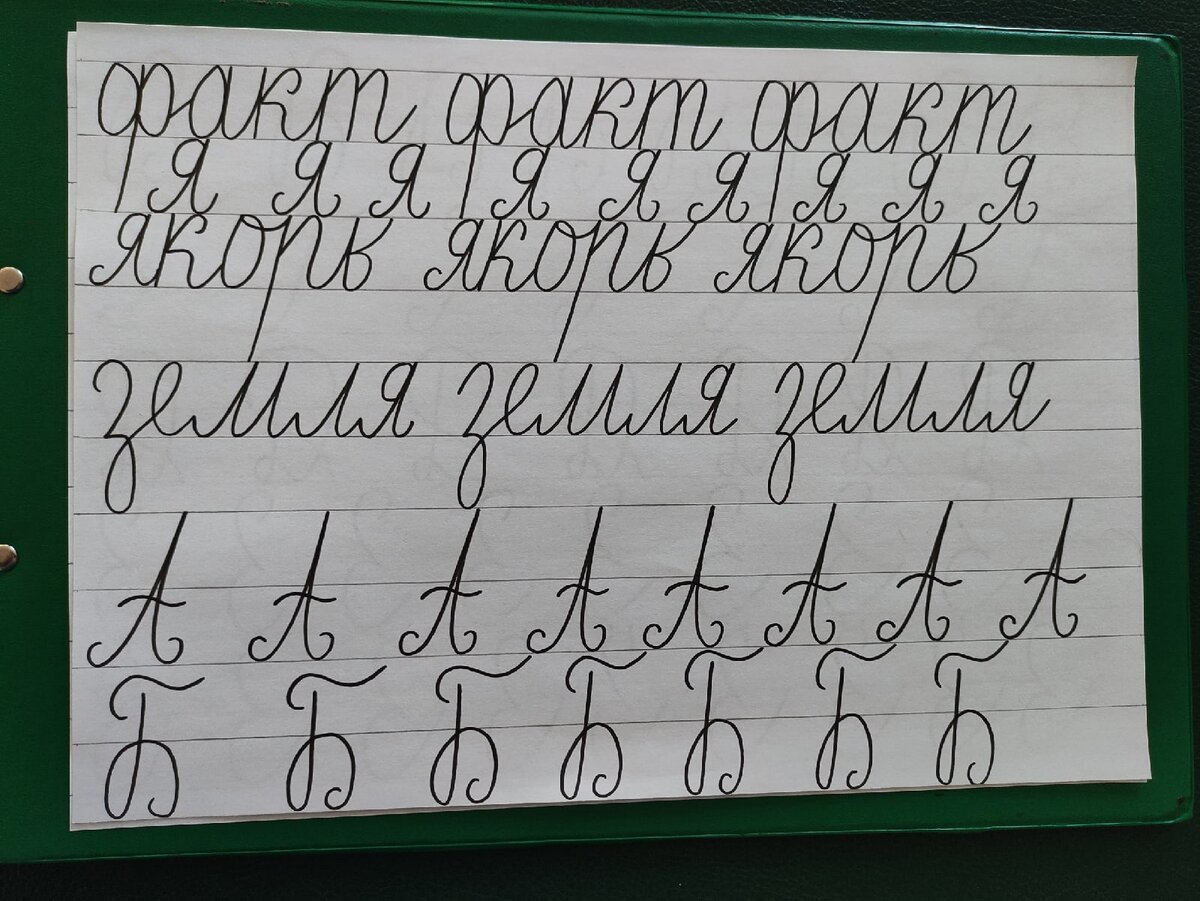 факт факт факт
я я я я я я я я я
якорь якорь якорь
земля земля земля
А А А А А А А А
Б Б Б Б Б Б Б